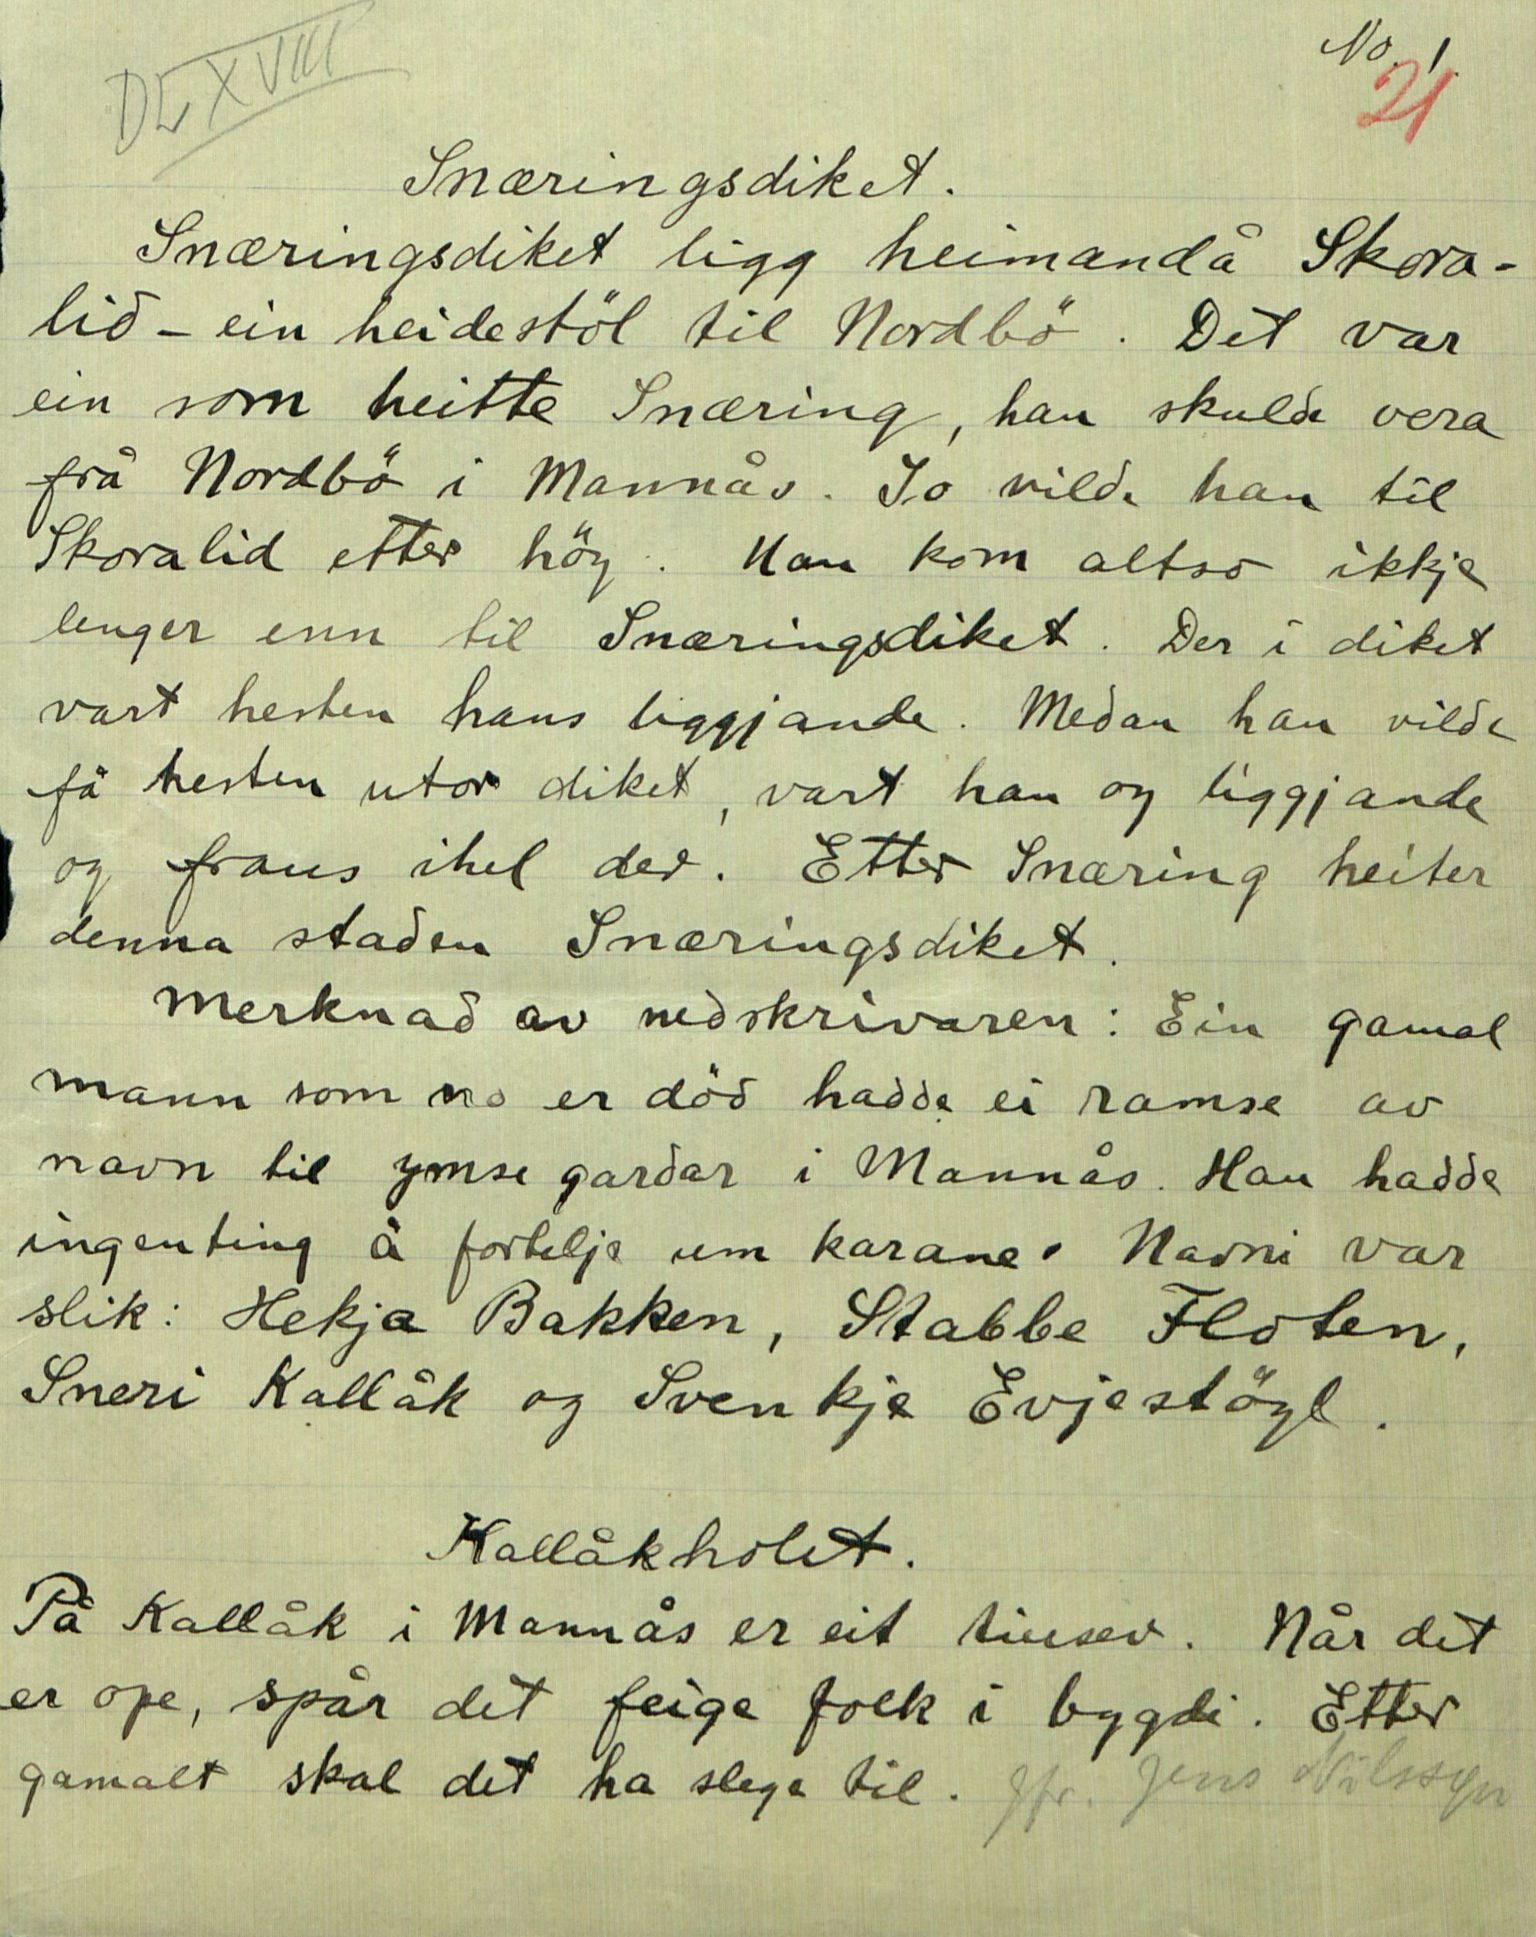 DL XVIII
No. 1.
21
Snæringsdiket.
Snæringsdiket ligg heimandå Skora-
lid - ein heidestöl til Nordbö. Det var
ein som heitte Snæring, han skulde vera
frå Nordbö i Mannås. So vilde han til
Skoralid etter höy. Han kom altso ikkje
lenger enn til Snæringsdiket. Der i diket
vart hesten hans liggjande. Medan han vilde
få hesten utor diket, vart han og liggjande
og fraus ihel der. Etter Snæring heiter
denna staden Snæringsdiket.
Merknad av nedskrivaren: Ein gamal
mann som no er död hadde ei ramse av
navn til ymse gardar i Mannås. Han hadde
ingenting å fortelje um karane. Navni var
slik: Hekja Bakken, Stabbe Floten,
Sneri Kallåk og Svenkje Evjestöyl.
Kallåkholet.
På Kallåk i Mannås er eit
. Når det
er ope, spår det feige folk i bygdi. Etter
gamalt skal det ha slege til. Jfr. Jens Nilssøn